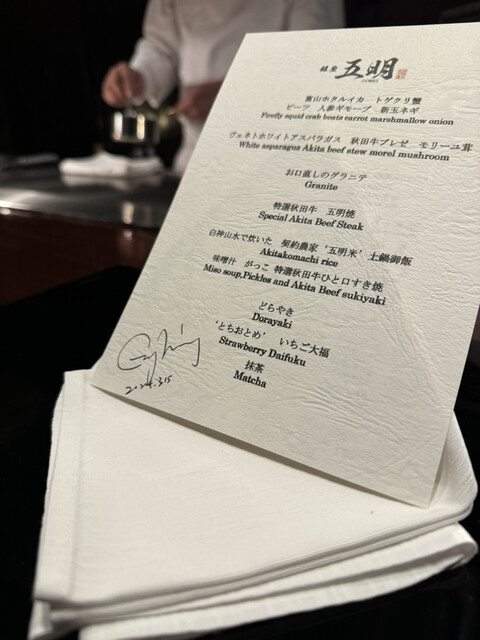 銀座 五明
GOMEI
富山ホタルイカ トゲクリ蟹
ビーツ 人参ギモーブ 新玉ネギ
Firefly squid crab beats carrot marshmallow onion
ヴェネトホワイトアスパラガス 秋田牛ブレゼ モリーユ茸
White asparagus Akita beef stow morel mushroom
お口直しのグラニテ
Granite
特選秋田牛 五明焼
Special Akita Beef Steak
白神山水で炊いた 契約農家‘五明米’土鍋御飯
Akitakomachi rice
味噌汁 がっこ 特選秋田牛ひと口すき焼
Miso soup,Pickles and Akita Beef sukiyaki
どらやき
Dorayaki
‘とちおとめ’ いちご大福
Strawberry Daifuku
抹茶
Matcha
2024.3.15